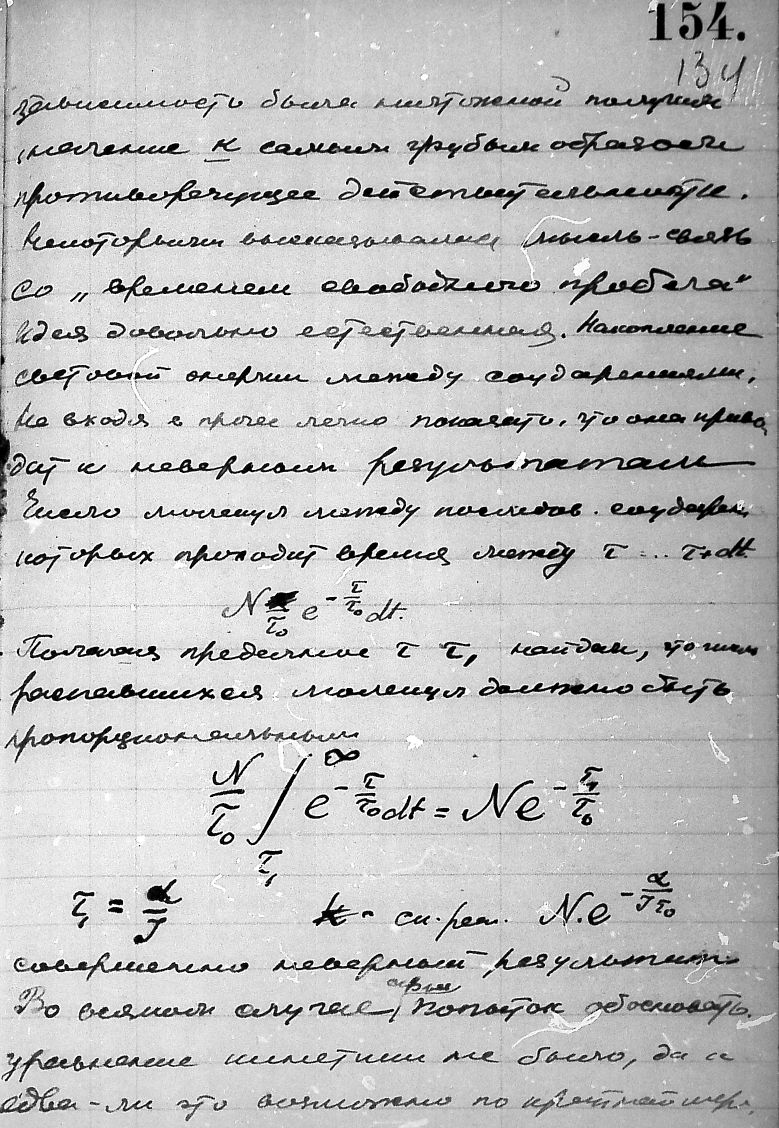 154.
134
зависимость была ничтожной получил
значение к самым грубым образом
противоречущее действительности.
Некоторыми высказывалась мысль - связь
со „временем свободного пробега“
Идея довольно естественная. Накопление
световой энергии между соударениями.
Не входя в прочее легко показать, что она приво
дит к неверным результатам
Число молекул между последов. соударен.
которых проходит время между τ ... τ+dτ.
N/τ₀ e^(-τ/τ₀) dτ.
Полагая предельное τ τ₁ найдем, что число
распавшихся молекул должно быть
пропорциональным
N/τ₀ ∫_{τ₁}^{∞} e^(-τ/τ₀) dτ = N e^(-τ₁/τ₀)
τ₁ = α/J ск. реак. N.e^(-α/Jτ₀)
совершенно неверный результат
Во всяком случае, попыток обосновать
уравнение кинетики не было, да и
едва-ли это возможно по крайней мере,